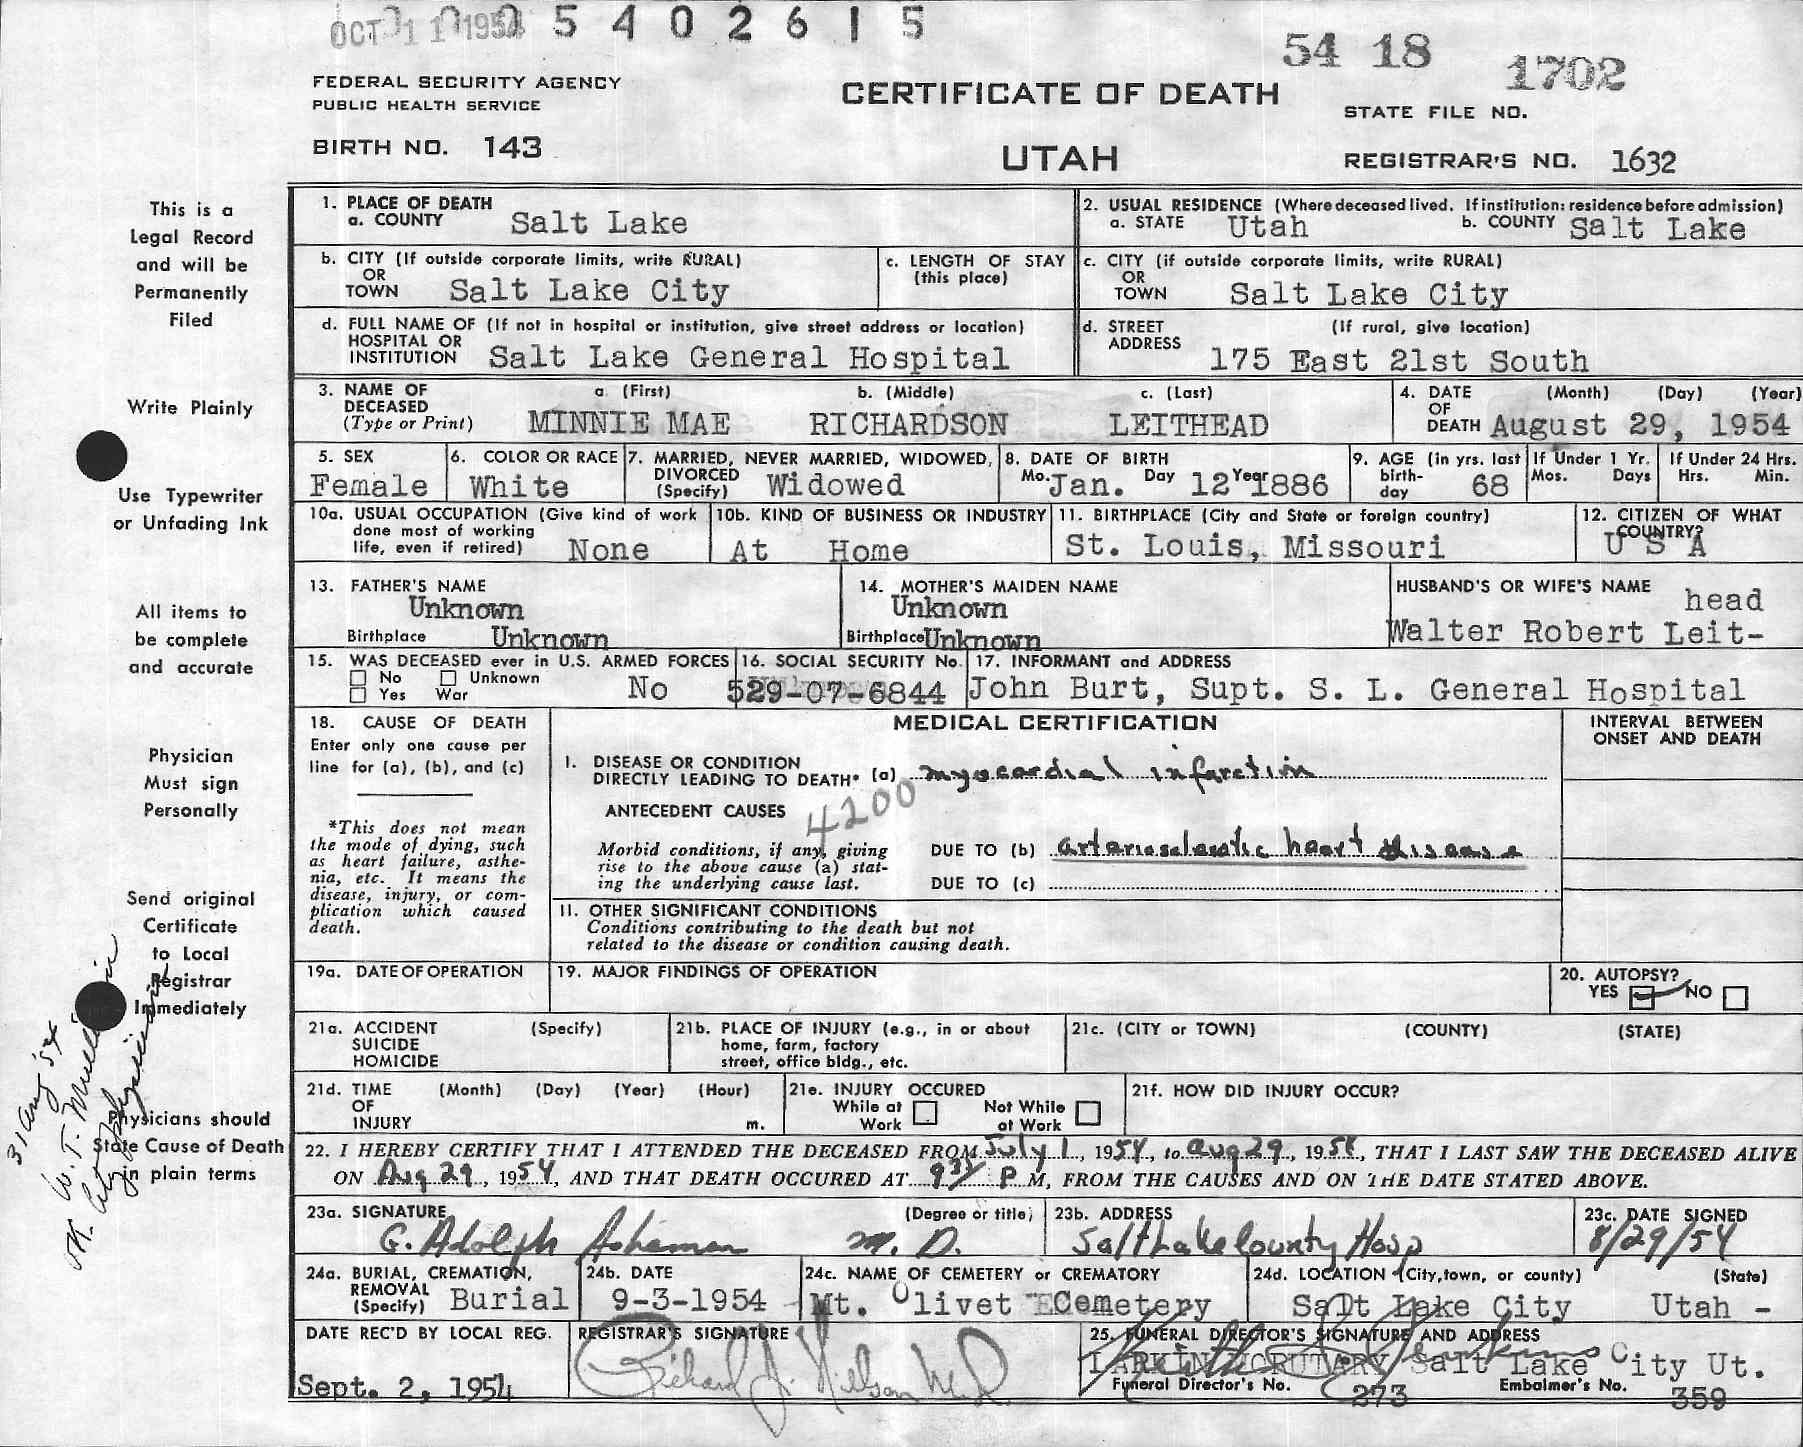 OCT 11 1954 5 4 0 2 6 1 5
54 18 1702
FEDERAL SECURITY AGENCY
PUBLIC HEALTH SERVICE
CERTIFICATE OF DEATH
STATE FILE NO.
BIRTH NO. 143
UTAH
REGISTRAR'S NO. 1632
This is a
Legal Record
and will be
Permanently
Filed
Write Plainly
Use Typewriter
or Unfading Ink
All items to
be complete
and accurate
Physician
Must sign
Personally
Send original
Certificate
to Local
Registrar
Immediately
Physicians should
State Cause of Death
in plain terms
31 Aug '54
OK. W. T.
City Physician
1. PLACE OF DEATH
a. COUNTY Salt Lake
2. USUAL RESIDENCE (Where deceased lived. If institution: residence before admission)
a. STATE Utah b. COUNTY Salt Lake
b. CITY (If outside corporate limits, write RURAL)
OR
TOWN Salt Lake City
c. LENGTH OF STAY
(this place)
c. CITY (if outside corporate limits, write RURAL)
OR
TOWN Salt Lake City
d. FULL NAME OF (If not in hospital or institution, give street address or location)
HOSPITAL OR
INSTITUTION Salt Lake General Hospital
d. STREET (If rural, give location)
ADDRESS 175 East 21st South
3. NAME OF a. (First) b. (Middle) c. (Last)
DECEASED
(Type or Print) MINNIE MAE RICHARDSON LEITHEAD
4. DATE (Month) (Day) (Year)
OF
DEATH August 29, 1954
5. SEX
Female
6. COLOR OR RACE
White
7. MARRIED, NEVER MARRIED, WIDOWED,
DIVORCED
(Specify) Widowed
8. DATE OF BIRTH
Mo. Jan. Day 12 Year 1886
9. AGE (in yrs. last
birth-
day 68
If Under 1 Yr.
Mos. Days
If Under 24 Hrs.
Hrs. Min.
10a. USUAL OCCUPATION (Give kind of work
done most of working
life, even if retired) None
10b. KIND OF BUSINESS OR INDUSTRY
At Home
11. BIRTHPLACE (City and State or foreign country)
St. Louis, Missouri
12. CITIZEN OF WHAT
COUNTRY?
U S A
13. FATHER'S NAME
Unknown
Birthplace Unknown
14. MOTHER'S MAIDEN NAME
Unknown
Birthplace Unknown
HUSBAND'S OR WIFE'S NAME
head
Walter Robert Leit-
15. WAS DECEASED ever in U.S. ARMED FORCES
No Unknown
Yes War No
16. SOCIAL SECURITY No.
529-07-6844
17. INFORMANT and ADDRESS
John Burt, Supt. S. L. General Hospital
18. CAUSE OF DEATH
Enter only one cause per
line for (a), (b), and (c)
*This does not mean
the mode of dying, such
as heart failure, asthe-
nia, etc. It means the
disease, injury, or com-
plication which caused
death.
MEDICAL CERTIFICATION
INTERVAL BETWEEN
ONSET AND DEATH
I. DISEASE OR CONDITION
DIRECTLY LEADING TO DEATH* (a) myocardial infarction
ANTECEDENT CAUSES 4200
Morbid conditions, if any, giving
rise to the above cause (a) stat-
ing the underlying cause last.
DUE TO (b) arteriosclerotic heart disease
DUE TO (c)
11. OTHER SIGNIFICANT CONDITIONS
Conditions contributing to the death but not
related to the disease or condition causing death.
19a. DATE OF OPERATION
19. MAJOR FINDINGS OF OPERATION
20. AUTOPSY?
YES NO
21a. ACCIDENT (Specify)
SUICIDE
HOMICIDE
21b. PLACE OF INJURY (e.g., in or about
home, farm, factory
street, office bldg., etc.
21c. (CITY or TOWN) (COUNTY) (STATE)
21d. TIME (Month) (Day) (Year) (Hour)
OF
INJURY m.
21e. INJURY OCCURED
While at Work
Not While at Work
21f. HOW DID INJURY OCCUR?
22. I HEREBY CERTIFY THAT I ATTENDED THE DECEASED FROM July 1, 1954, to Aug 29, 1954, THAT I LAST SAW THE DECEASED ALIVE
ON Aug 29, 1954, AND THAT DEATH OCCURED AT P M, FROM THE CAUSES AND ON THE DATE STATED ABOVE.
23a. SIGNATURE (Degree or title)
G. Adolph M. D.
23b. ADDRESS
Salt Lake County Hosp
23c. DATE SIGNED
8/29/54
24a. BURIAL, CREMATION,
REMOVAL
(Specify) Burial
24b. DATE
9-3-1954
24c. NAME OF CEMETERY or CREMATORY
Mt. Olivet Cemetery
24d. LOCATION (City, town, or county) (State)
Salt Lake City Utah -
DATE REC'D BY LOCAL REG.
Sept. 2, 1954
REGISTRAR'S SIGNATURE
Richard J. Nielson M.D.
25. FUNERAL DIRECTOR'S SIGNATURE AND ADDRESS
LARKIN MORTUARY Salt Lake City Ut.
Funeral Director's No. 273 Embalmer's No. 359